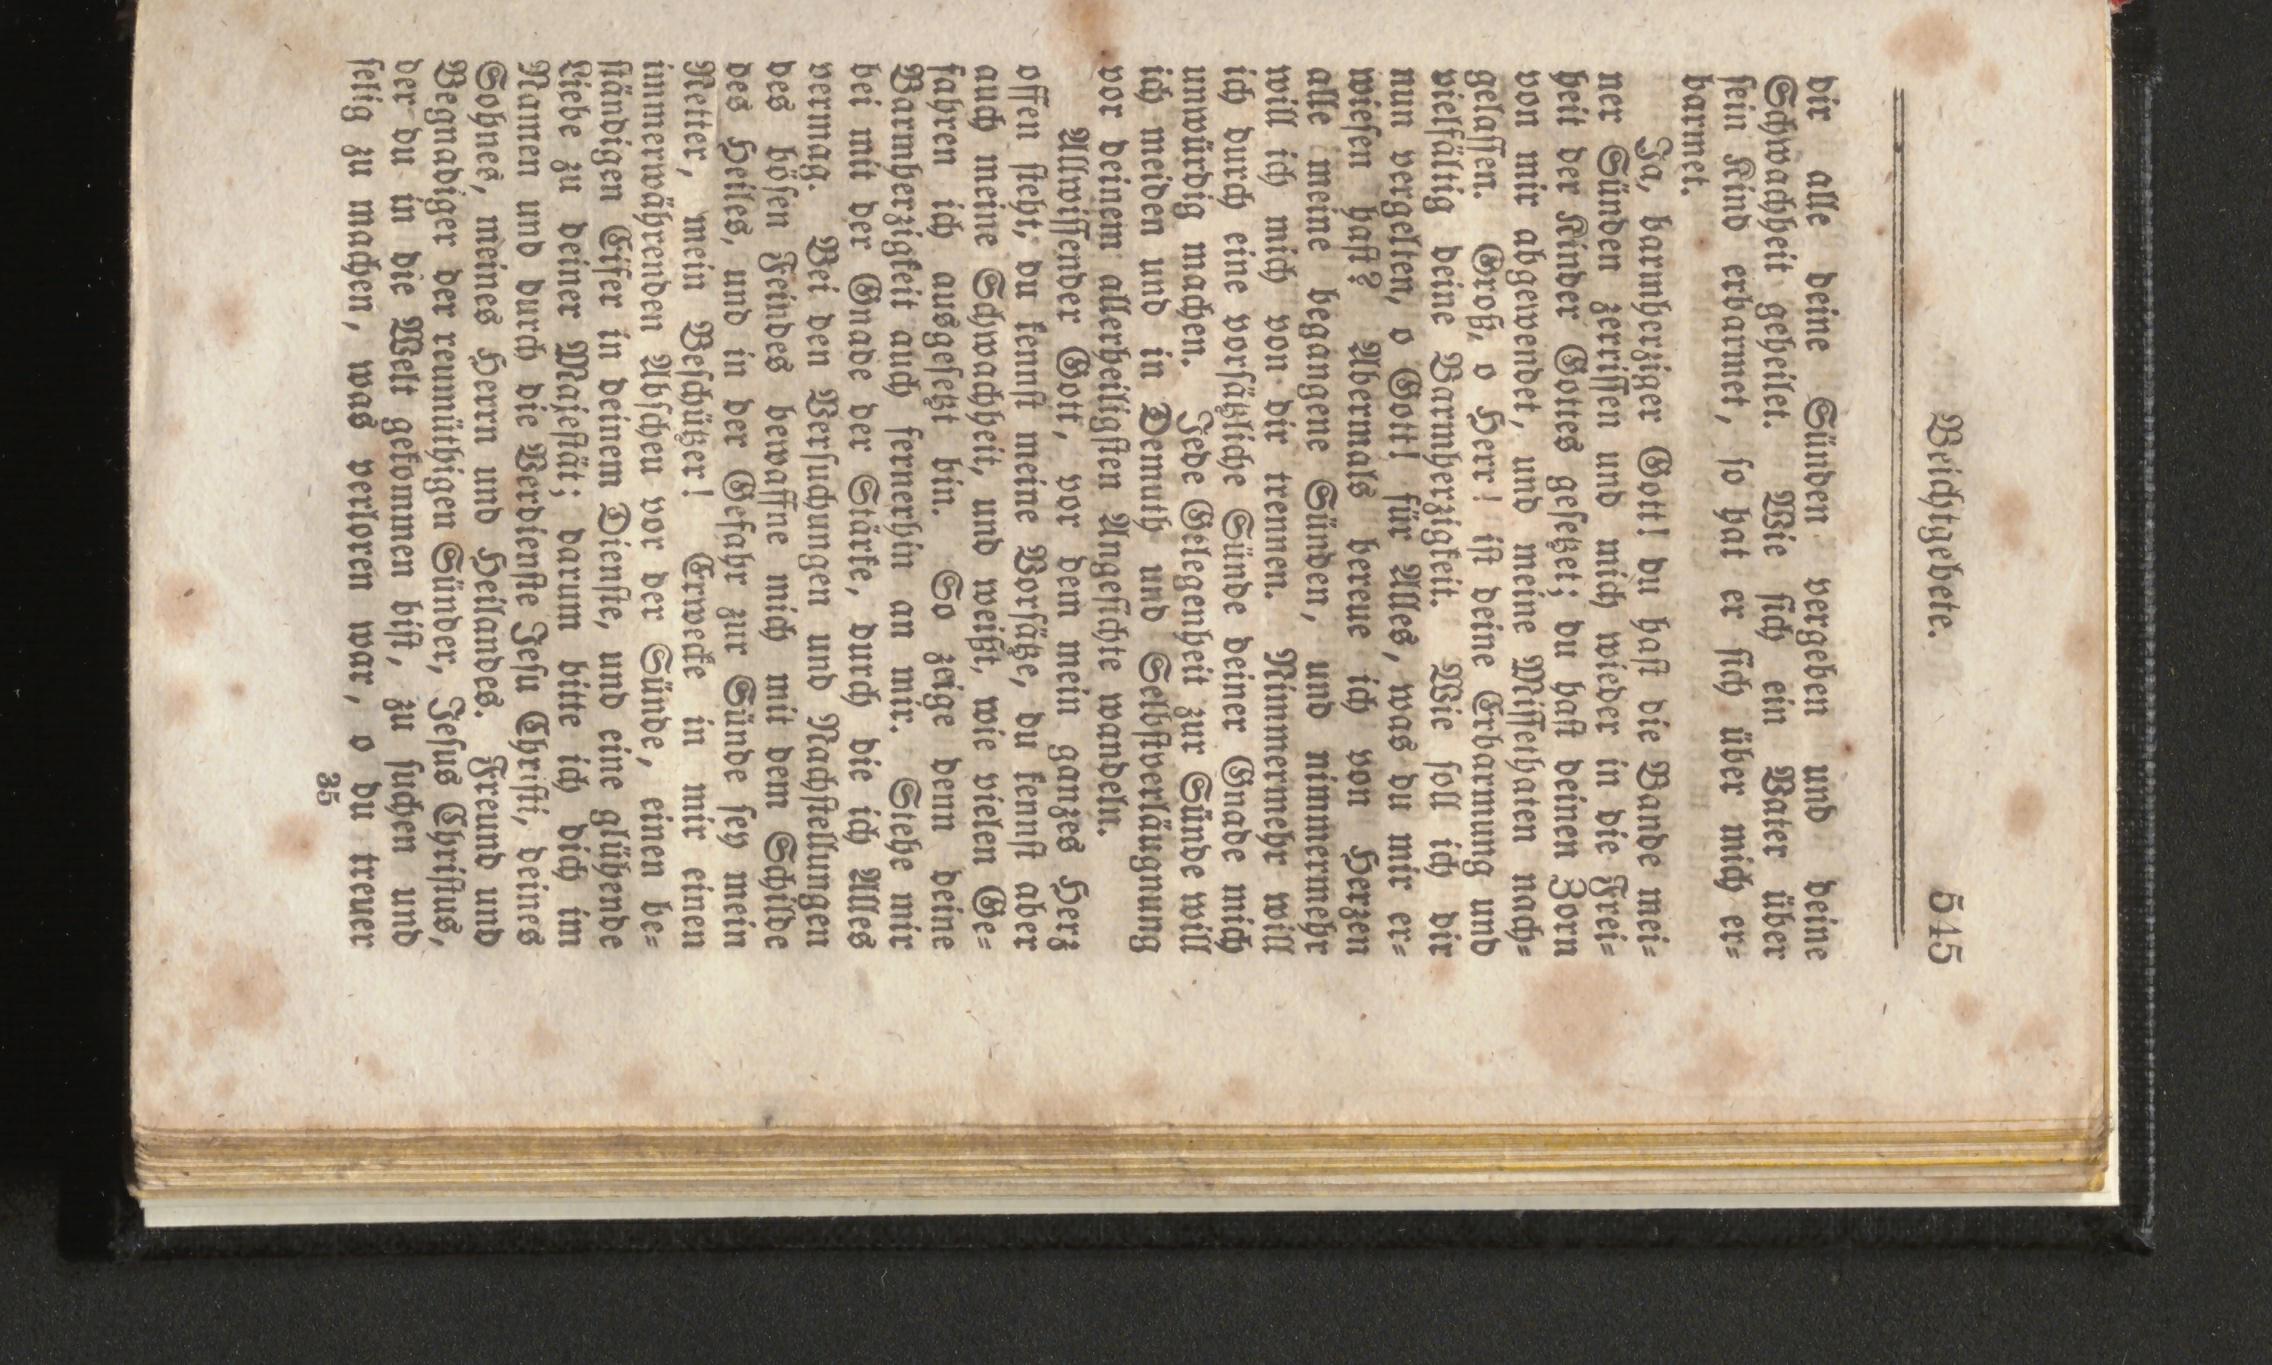 Beichtgebete. 545
dir alle deine Sünden vergeben und deine
Schwachheit geheilet. Wie sich ein Vater über
sein Kind erbarmet, so hat er sich über mich er=
barmet.
Ja, barmherziger Gott! du hast die Bande mei=
ner Sünden zerrissen und mich wieder in die Frei=
heit der Kinder Gottes gesetzet; du hast deinen Zorn
von mir abgewendet, und meine Missethaten nach=
gelassen. Groß, o Herr! ist deine Erbarmung und
vielfältig deine Barmherzigkeit. Wie soll ich dir
nun vergelten, o Gott! für Alles, was du mir er=
wiesen hast? Abermals bereue ich von Herzen
alle meine begangene Sünden, und nimmermehr
will ich mich von dir trennen. Nimmermehr will
ich durch eine vorsätzliche Sünde deiner Gnade mich
unwürdig machen. Jede Gelegenheit zur Sünde will
ich meiden und in Demuth und Selbstverläugnung
vor deinem allerheiligsten Angesichte wandeln.
Allwissender Gott, vor dem mein ganzes Herz
offen steht, du kennst meine Vorsätze, du kennst aber
auch meine Schwachheit, und weißt, wie vielen Ge=
fahren ich ausgesetzt bin. So zeige denn deine
Barmherzigkeit auch fernerhin an mir. Stehe mir
bei mit der Gnade der Stärke, durch die ich Alles
vermag. Bei den Versuchungen und Nachstellungen
des bösen Feindes bewaffne mich mit dem Schilde
des Heiles, und in der Gefahr zur Sünde sey mein
Retter, mein Beschützer! Erwecke in mir einen
immerwährenden Abscheu vor der Sünde, einen be=
ständigen Eifer in deinem Dienste, und eine glühende
Liebe zu deiner Majestät; darum bitte ich dich im
Namen und durch die Verdienste Jesu Christi, deines
Sohnes, meines Herrn und Heilandes. Freund und
Begnadiger der reumüthigen Sünder, Jesus Christus,
der du in die Welt gekommen bist, zu suchen und
selig zu machen, was verloren war, o du treuer
35